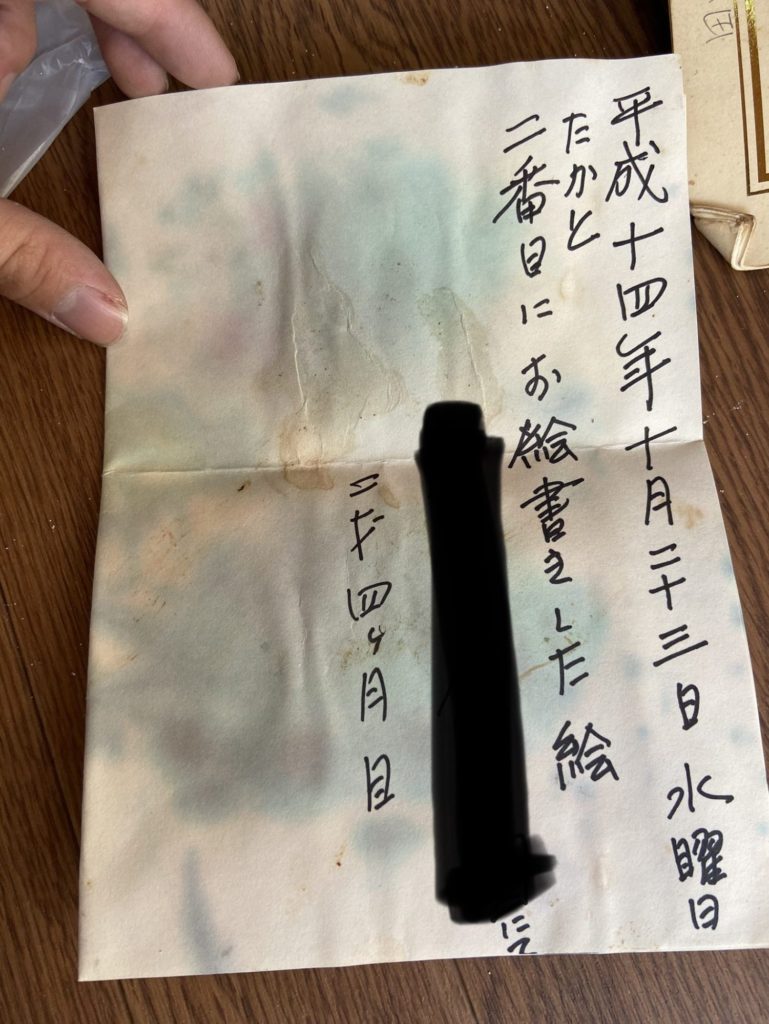 平成十四年十月二十三日 水曜日
たかと
二番目に お絵書きした 絵
にて
二才四ヶ月目